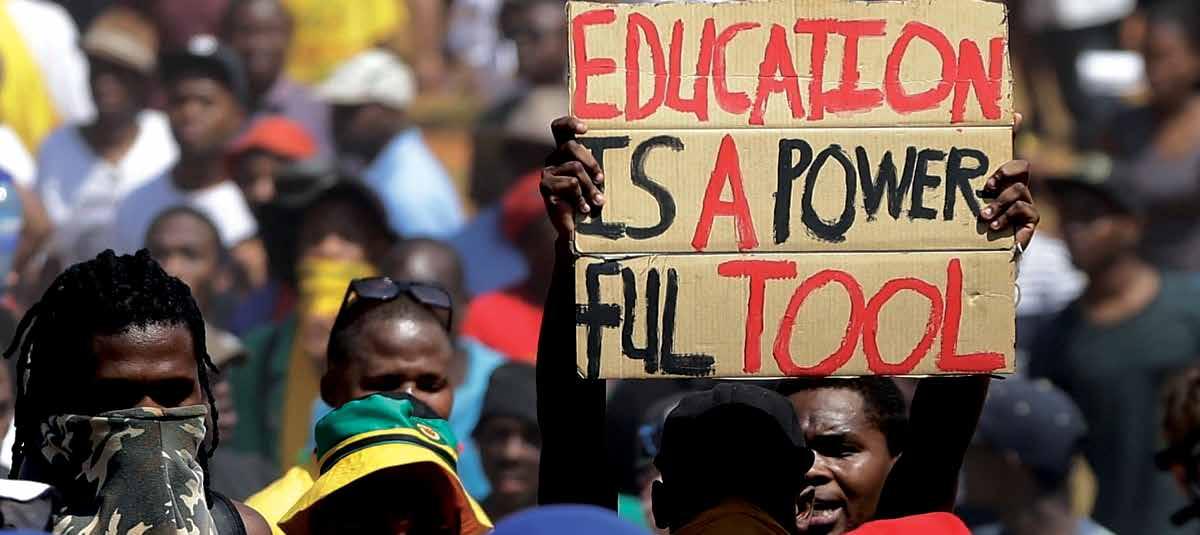 EDUCATION
IS A POWER
FUL TOOL